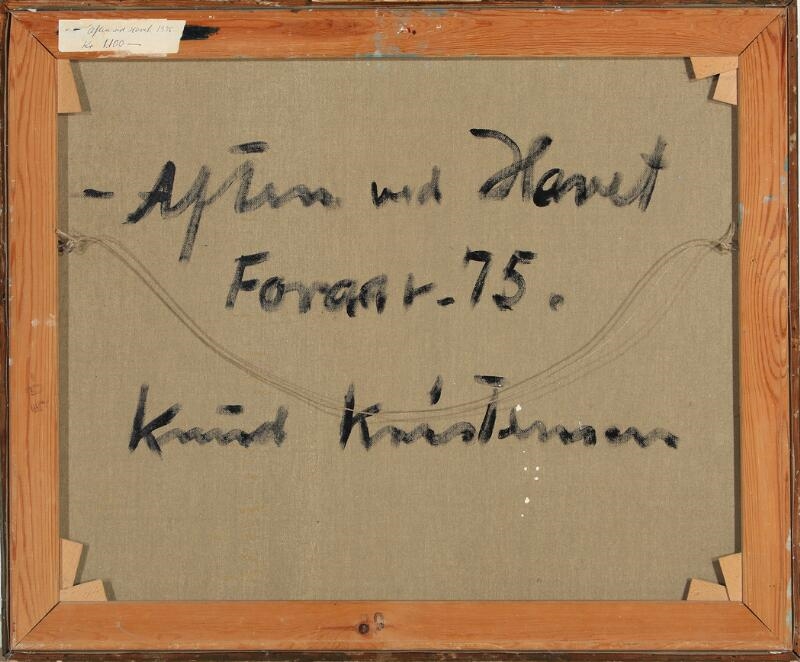 - Aften ved Havet 1975
Kr. 1.100 —
- Aften ved Havet
Foraar - 75.
Knud Kristensen